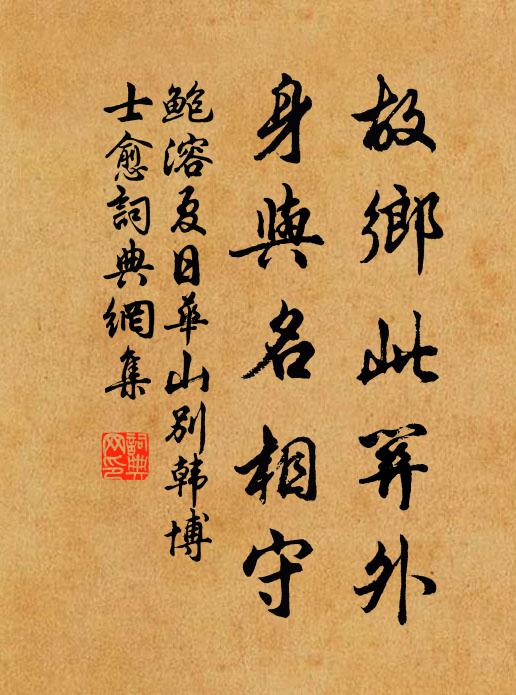 故鄉此關外
身與名相守
鮑溶夏日華山別韩博
士愈詞典網集
詞典網印